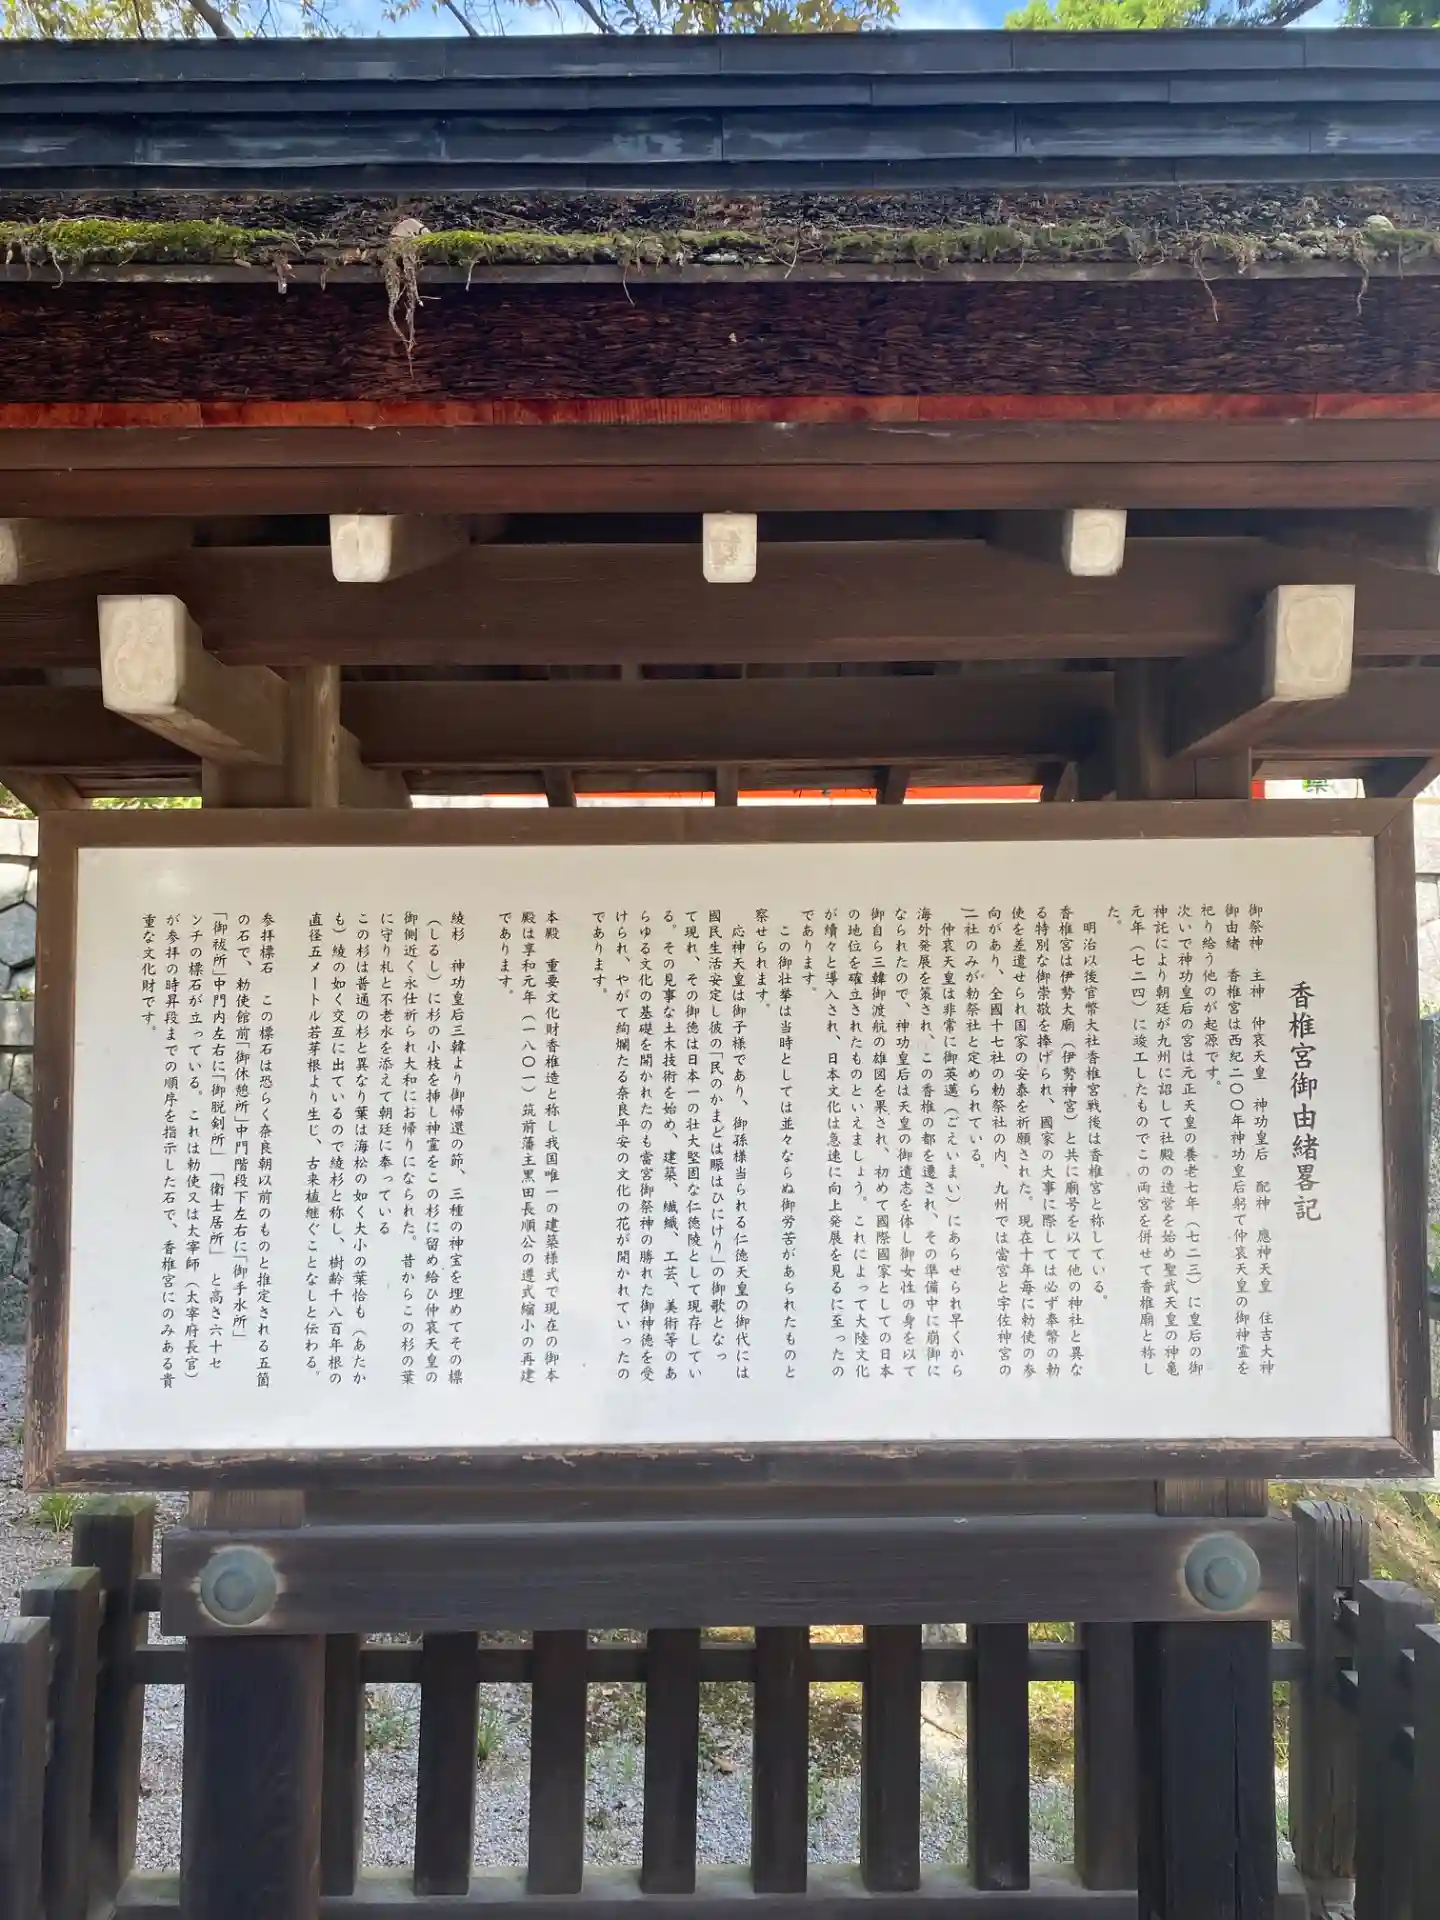 香椎宮御由緒畧記
御祭神　主神　仲哀天皇　神功皇后　配神　應神天皇　住吉大神
御由緒　香椎宮は西紀二〇〇年神功皇后躬て仲哀天皇の御神霊を
祀り給う他のが起源です。
次いで神功皇后の宮は元正天皇の養老七年（七二三）に皇后の御
神託により朝廷が九州に詔して社殿の造営を始め聖武天皇の神亀
元年（七二四）に竣工したものでこの両宮を併せて香椎廟と称し
た。
明治以後官幣大社香椎宮戦後は香椎宮と称している。
香椎宮は伊勢大廟（伊勢神宮）と共に廟号を以て他の神社と異な
る特別な御崇敬を捧げられ、國家の大事に際しては必ず奉幣の勅
使を差遣せられ国家の安泰を祈願された。現在十年毎に勅使の参
向があり、全國十七社の勅祭社の内、九州では當宮と宇佐神宮の
二社のみが勅祭社と定められている。
仲哀天皇は非常に御英邁（ごえいまい）にあらせられ早くから
海外発展を策され、この香椎の都を遷され、その準備中に崩御に
なられたので、神功皇后は天皇の御遺志を体し御女性の身を以て
御自ら三韓御渡航の雄図を果され、初めて國際國家としての日本
の地位を確立されたものといえましょう。これによって大陸文化
が續々と導入され、日本文化は急速に向上発展を見るに至ったの
であります。
この御壮挙は当時としては並々ならぬ御労苦があられたものと
察せられます。
応神天皇は御子様であり、御孫様当られる仁徳天皇の御代には
國民生活安定し彼の「民のかまどは賑はひにけり」の御歌となっ
て現れ、その御徳は日本一の壮大堅固な仁徳陵として現存してい
る。その見事な土木技術を始め、建築、繊織、工芸、美術等のあ
らゆる文化の基礎を開かれたのも當宮御祭神の勝れた御神徳を受
けられ、やがて絢爛たる奈良平安の文化の花が開かれていったの
であります。
本殿　重要文化財香椎造と称し我国唯一の建築様式で現在の御本
殿は享和元年（一八〇一）筑前藩主黒田長順公の遵式縮小の再建
であります。
綾杉　神功皇后三韓より御帰還の節、三種の神宝を埋めてその標
（しるし）に杉の小枝を挿し神霊をこの杉に留め給ひ仲哀天皇の
御側近く永仕祈られ大和にお帰りになられた。昔からこの杉の葉
に守り札と不老水を添えて朝廷に奉っている
この杉は普通の杉と異なり葉は海松の如く大小の葉恰も（あたか
も）綾の如く交互に出ているので綾杉と称し、樹齢千八百年根の
直径五メートル若芽根より生じ、古来植継ぐことなしと伝わる。
参拝標石　この標石は恐らく奈良朝以前のものと推定される五箇
の石で、勅使館前「御休憩所」中門階段下左右に「御手水所」
「御祓所」中門内左右に「御脱剣所」「衛士居所」と高さ六十セ
ンチの標石が立っている。これは勅使又は大宰師（太宰府長官）
が参拝の時昇段までの順序を指示した石で、香椎宮にのみある貴
重な文化財です。